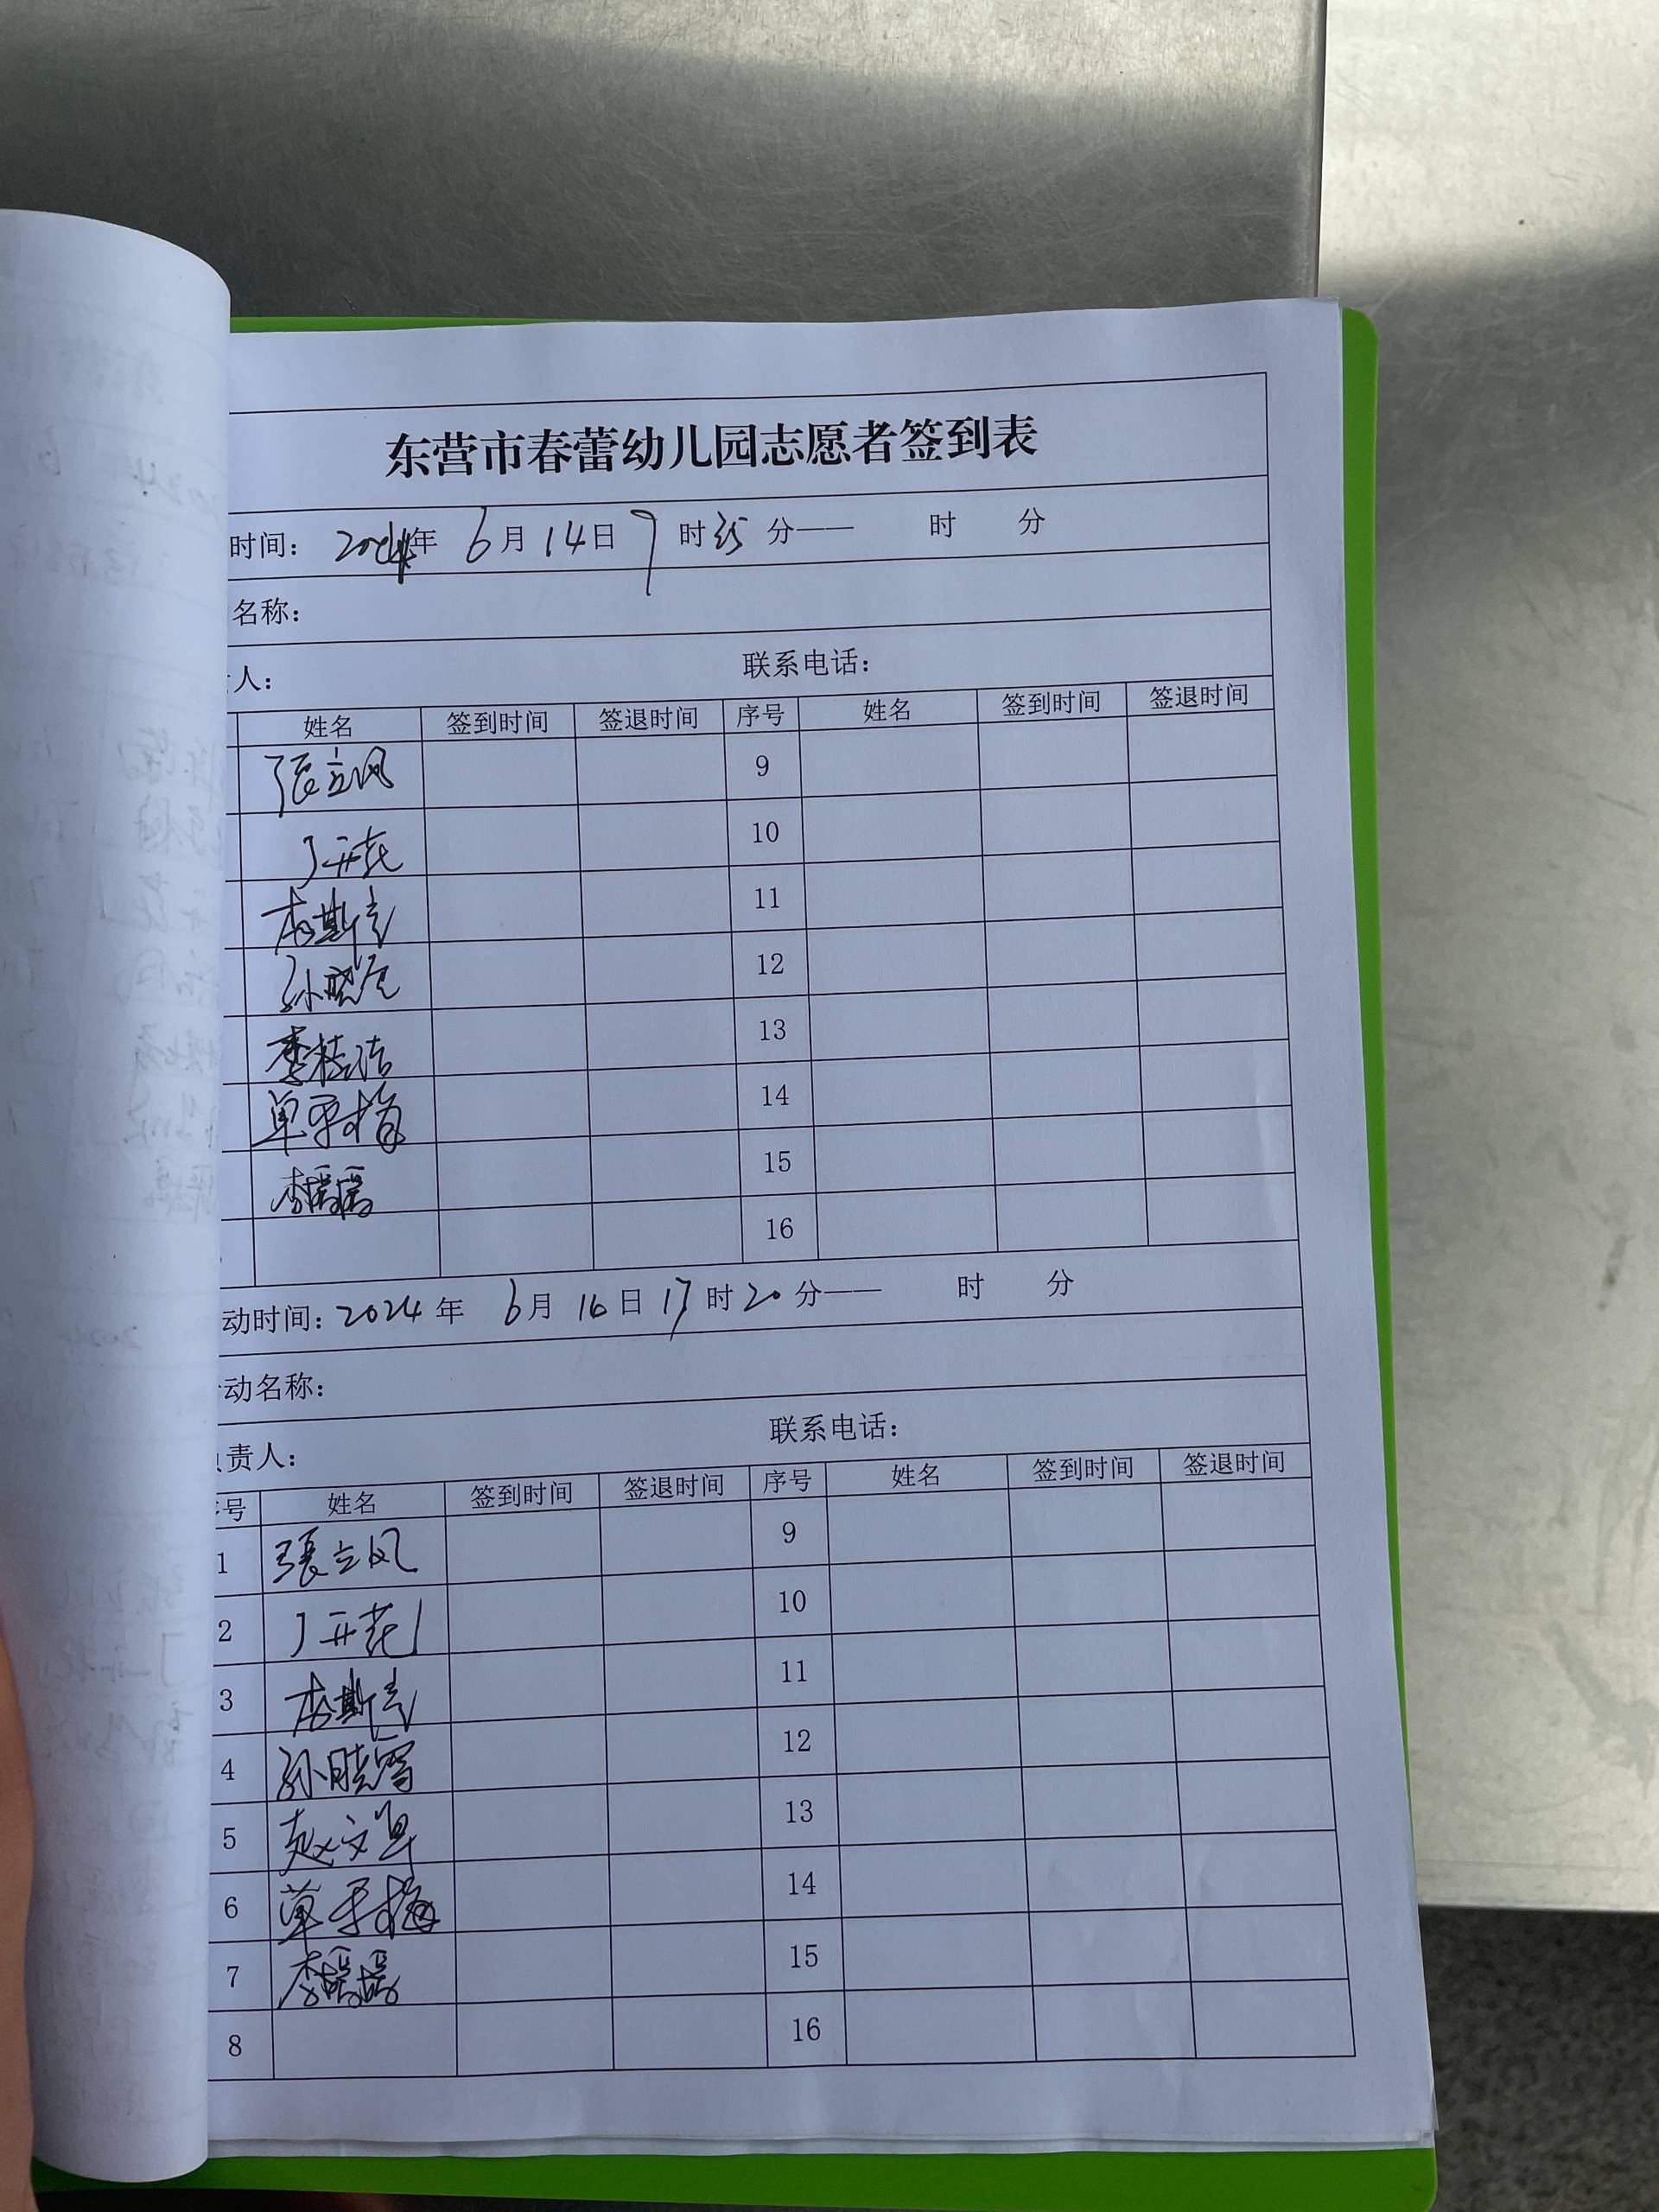 东营市春蕾幼儿园志愿者签到表
时间： 2024年 6月 14日 9时35分—— 时 分
名称：
人： 联系电话：
姓名 签到时间 签退时间 序号 姓名 签到时间 签退时间
張立风 9
丁开花 10
李斯吉 11
孙晓雪 12
李桂洁 13
单平梅 14
李瑶瑶 15
16
动时间：2024年 6月 16日 17时20分—— 时 分
动名称：
责人： 联系电话：
号 姓名 签到时间 签退时间 序号 姓名 签到时间 签退时间
1 張立风 9
2 丁开花 10
3 李斯吉 11
4 孙晓雪 12
5 赵文 13
6 单平梅 14
7 李瑶瑶 15
8 16